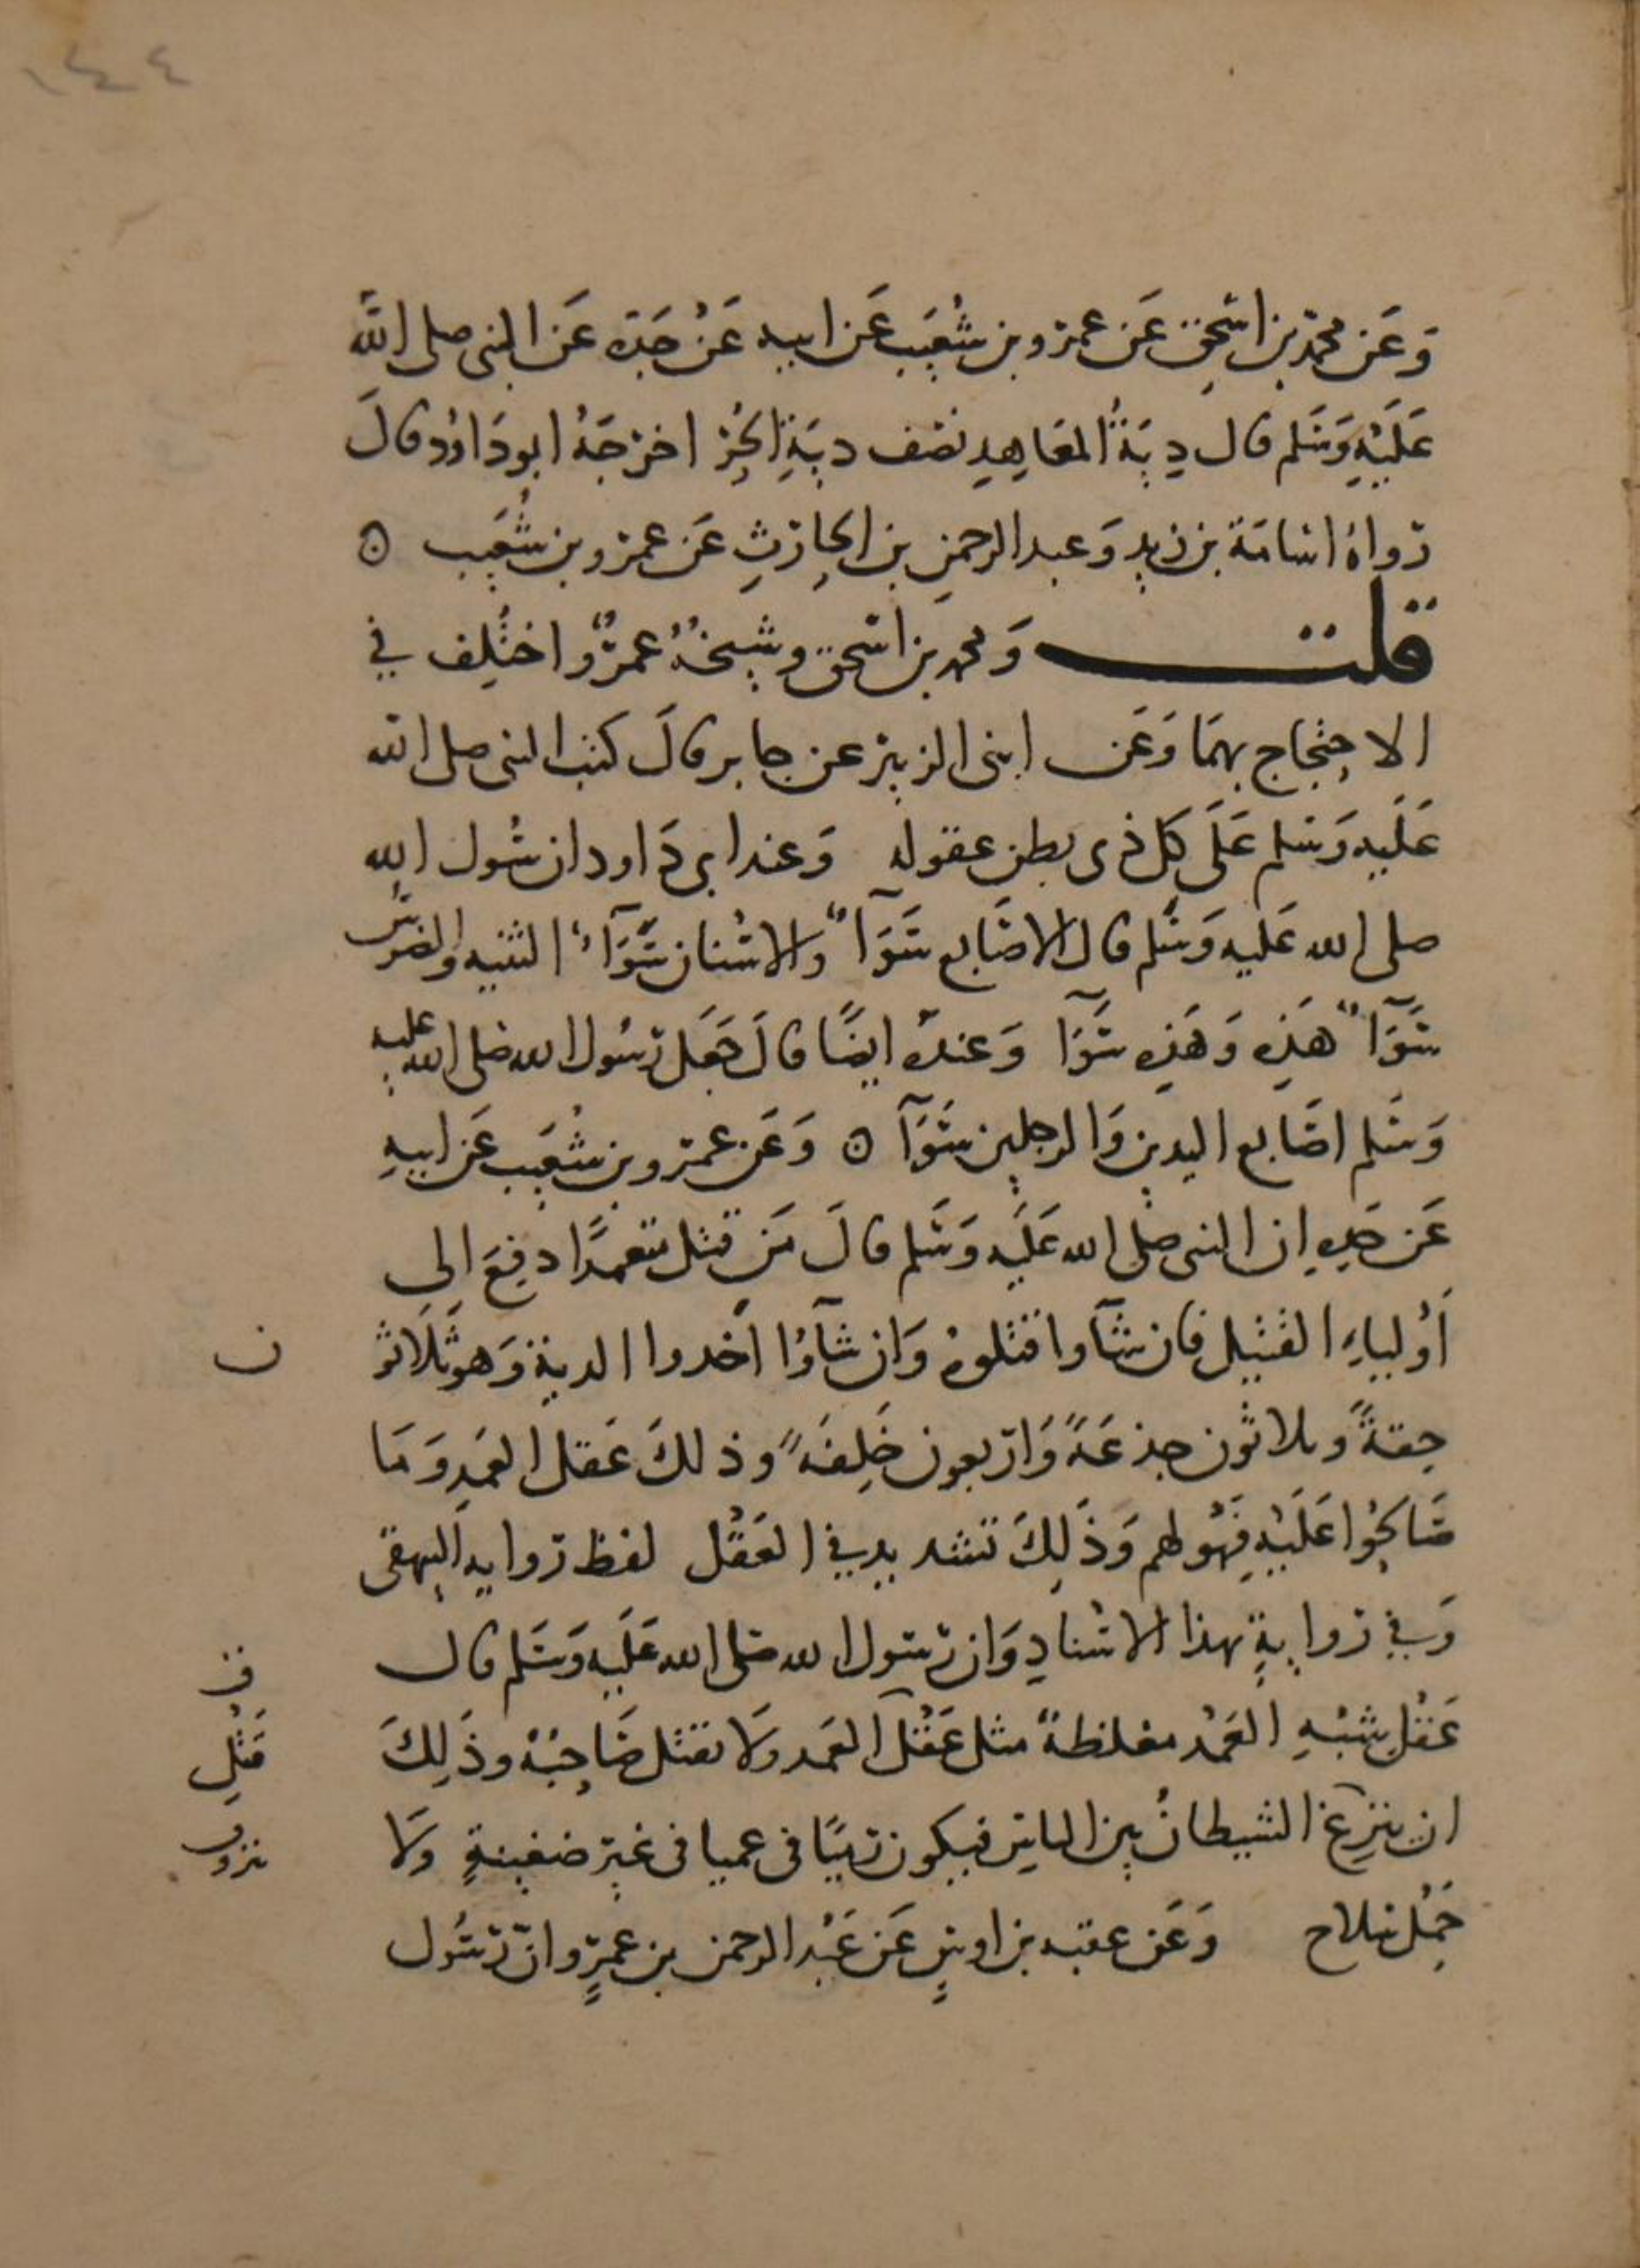 ١٤٤
وَعَن محمد بن اسحق عَن عمرو بن شُعَيب عَن ابيه عَنْ جَدّه عَن النبى صلى الله
عَلَيْهِ وَسَلم قال دِيَةُ المعَاهِدِ نصْف ديَةِ الحُرّ اخرجَهُ ابو دَاوُد وقالَ
رواهُ اسَامَة بن زيدٍ وَعبد الرحمنِ بن الحارثِ عَن عمرو بن شُعَيب ه
قلت وَمحمد بن اسحق وشيخُهُ عمرٌو اختُلِف في
الاحتجاج بهمَا وَعَن ابى الزبير عن جابر قالَ كتب النبى صلى الله
عَلَيه وَسَلم عَلَى كل ذى بطن عقوله وَعند ابى دَاود ان رسُول الله
صلى الله عَليه وَسَلم قال الاصَابع سَوَآءٌ والاسْنان سَوَآءٌ الثنيه والضرسُ
سَوَآءٌ هَذِه وَهَذِه سَوَآ وَعندهُ ايضًا قالَ جَعَل رسُول الله صلى الله عليه
وَسَلم اصَابع اليدين وَالرجلين سَوَآ ه وَعَن عمرو بن شُعَيب عَن ابيهِ
عَن جدِهِ ان النبى صلى الله عَلَيه وَسَلم قالَ مَن قتل متعمدًا دفِعَ الى
أوْلياءِ القتيل فان شآوا قتلوهُ وَان شآوُا أخدوا الدية وَهو ثَلاثو ن
حِقةً وثلاثون جذعَةً وَاربعون خَلِفَةً وذلكَ عَقل العَمدِ وَمَا
صَالحُوا عَلَيْهِ فَهُو لهم وَذَلِكَ تشديد في العَقْل لفظ روايه البيهقى
وَفي روايةٍ بهذا الاسْنادِ وَان رسُول الله صلى الله عَلَيه وَسَلم قال
عَقْل شبْهِ العَمْد مغلظةٌ مثل عَقْل العَمد ولَا يقتل صَاحبُهُ وذَلِكَ ف قَتْلِ
ان ينزغ الشيطانُ بين الناس فيكون رميًا فى عميا فى غير ضغينةٍ ولَا
حَمْل سلاح وَعَن عقبه بن اوسٍ عَن عَبْد الرحمن بن عمرٍو انّ رسُول